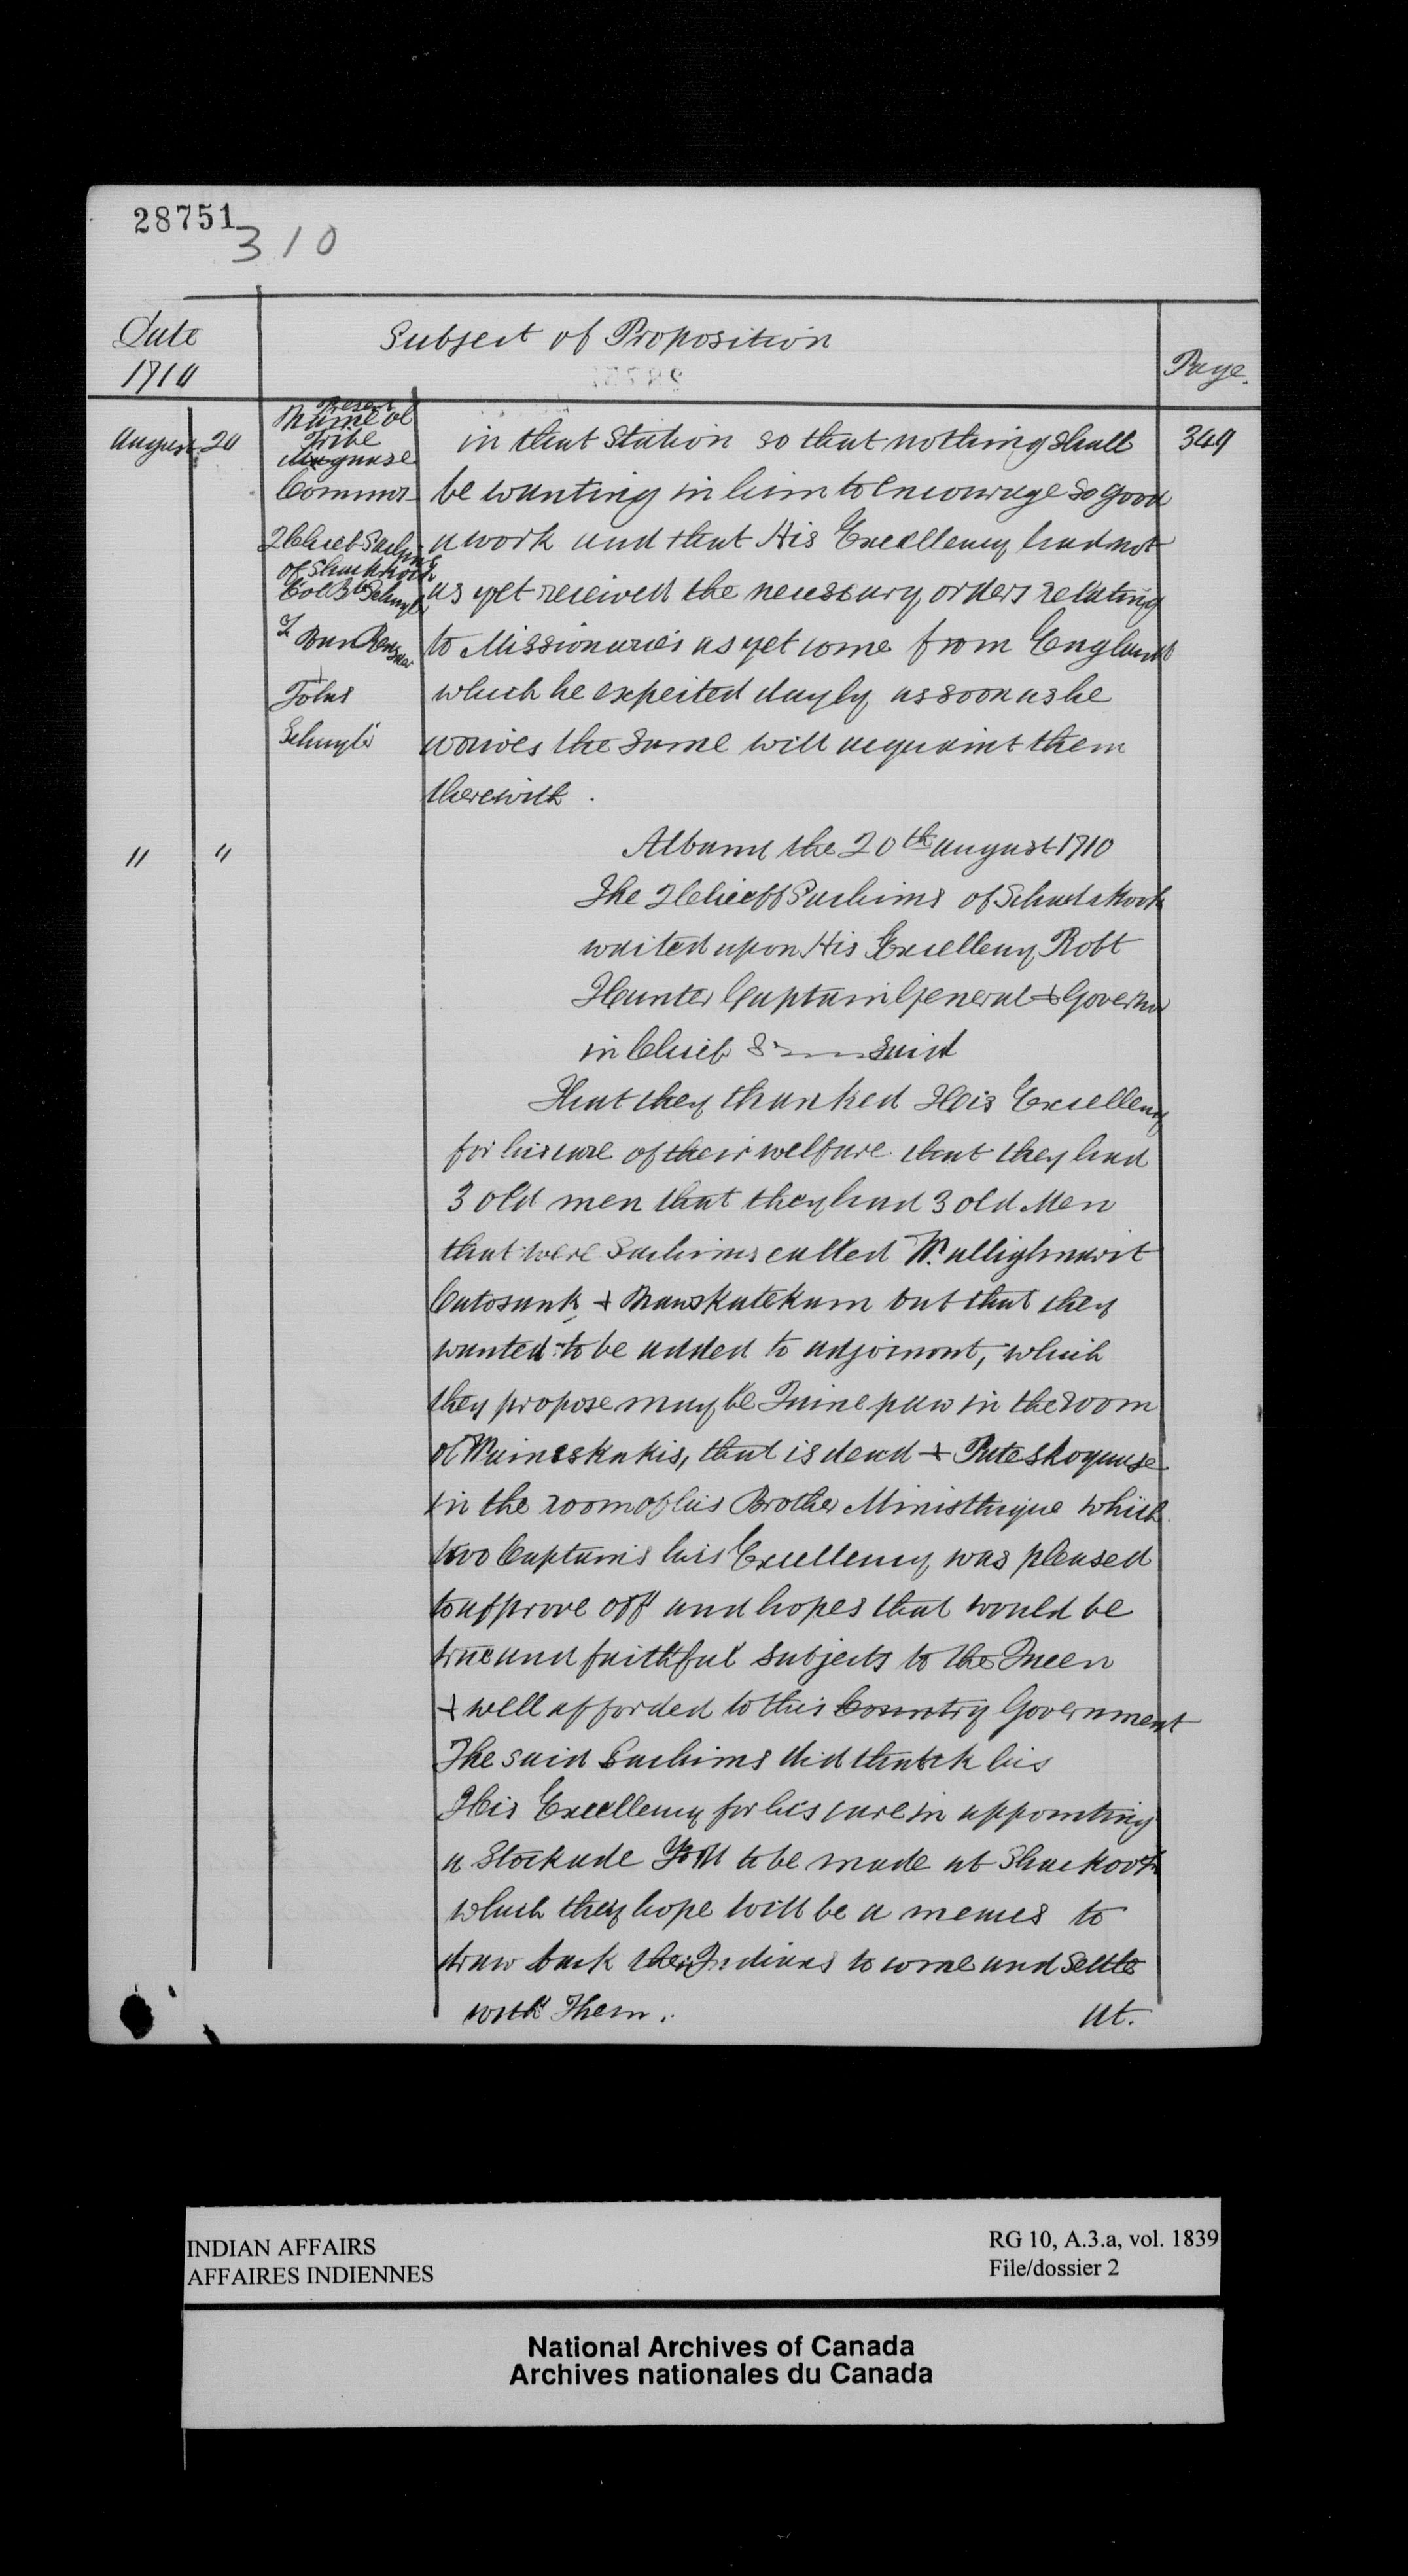 28751
310
Date
1710
Subject of Proposition
Page.
August 20
Present
Name of
Tribe
Maquase
Commrs
2 Chief Sachims
of Shackkook
Col Schuyl
Van Rensaer
+
Johs
Schuyler
349
in that Station so that nothing shall
be wanting in him to encourage so good
a work and that His Excellency had not
as yet received the necessary orders relating
to Missionaries as yet come from England
which he expected dayly as soon as he
the same will acquaint them
therewith.
" "
Albany the 20th august 1710
The 2 Chieff Sachims of Schaahkook
waited upon His Excellency Robt
Hunter Captain General & Governor
in Chief & said
That they thanked His Excellency
for his care of their welfare that they had
3 old men that they had 3 old Men
that were Sachims called Wallighnawit
Catosank & Mawskatekam but that they
wanted to be added to adjoinont, which
they propose may be Quinepaw in the room
of Wainsskakis, that is dead & Pateskoquase
in the room of his Brother Ministhique which
two Captains his Excellency was pleased
to approve off and hopes that would be
true and faithful subjects to the Queen
& well afforded to this Country Government
The said Sachims did thank his
His Excellency for his care in appointing
a Stockade Fort to be made at Shackook
which they hope will be a menes to
draw back their Indians to come and settle
with Them. at.
INDIAN AFFAIRS
AFFAIRES INDIENNES
RG 10, A.3.a, vol. 1839
File/dossier 2
National Archives of Canada
Archives nationales du Canada